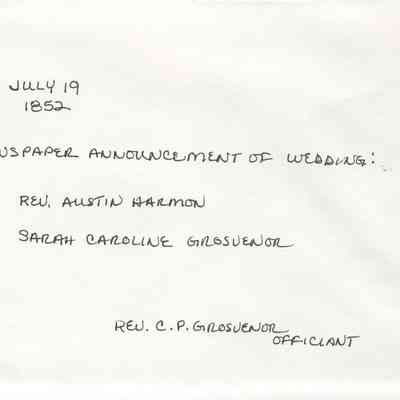 JULY 19
1852
WSPAPER ANNOUNCEMENT OF WEDDING:
REV. AUSTIN HARMON
SARAH CAROLINE GROSVENOR
REV. C.P. GROSVENOR
OFFICIANT